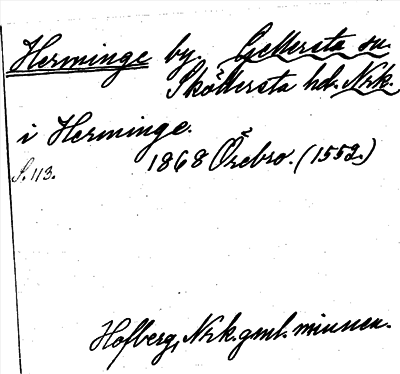 Herminge by. Gellersta sn.
Sköllersta hd. Nrk.
i Herminge.
1868 Örebro. (1552.)
S. 113.
Hofberg, Nrk. gml. minnen.